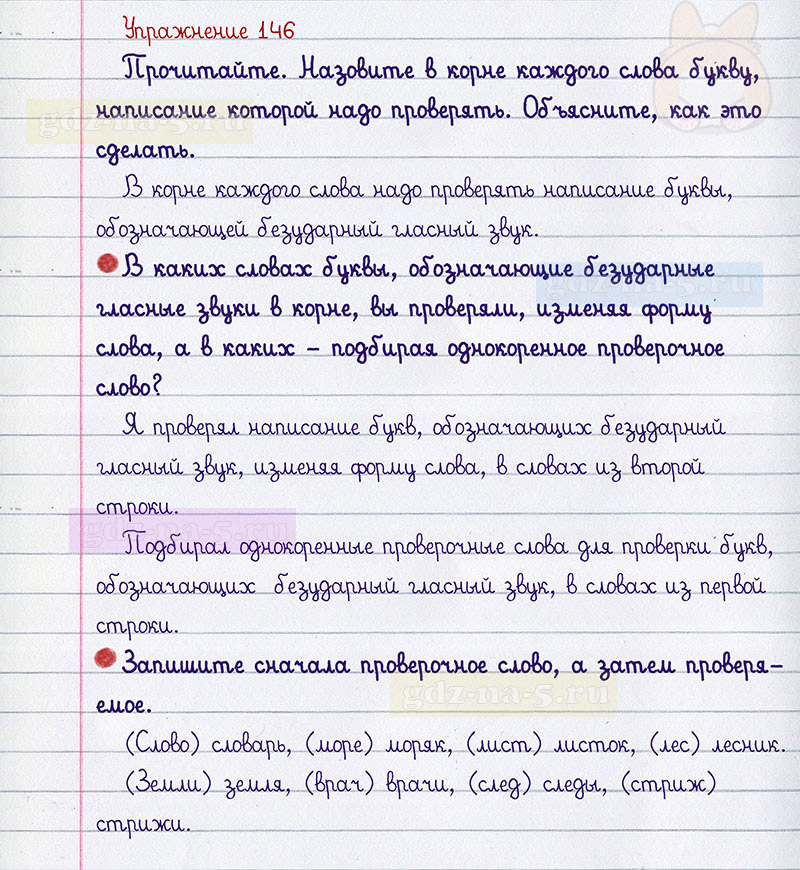 Упражнение 146
Прочитайте. Назовите в корне каждого слова букву,
написание которой надо проверять. Объясните, как это
сделать.
В корне каждого слова надо проверять написание буквы,
обозначающей безударный гласный звук.
В каких словах буквы, обозначающие безударные
гласные звуки в корне, вы проверяли, изменяя форму
слова, а в каких – подбирая однокоренное проверочное
слово?
Я проверял написание букв, обозначающих безударный
гласный звук, изменяя форму слова, в словах из второй
строки.
Подбирал однокоренные проверочные слова для проверки букв,
обозначающих безударный гласный звук, в словах из первой
строки.
Запишите сначала проверочное слово, а затем проверя–
емое.
(Слово) словарь, (море) моряк, (лист) листок, (лес) лесник.
(Земли) земля, (врач) врачи, (след) следы, (стриж)
стрижи.
gdz-na-5.ru
gdz-na-5.ru
gdz-na-5.ru
gdz-na-5.ru